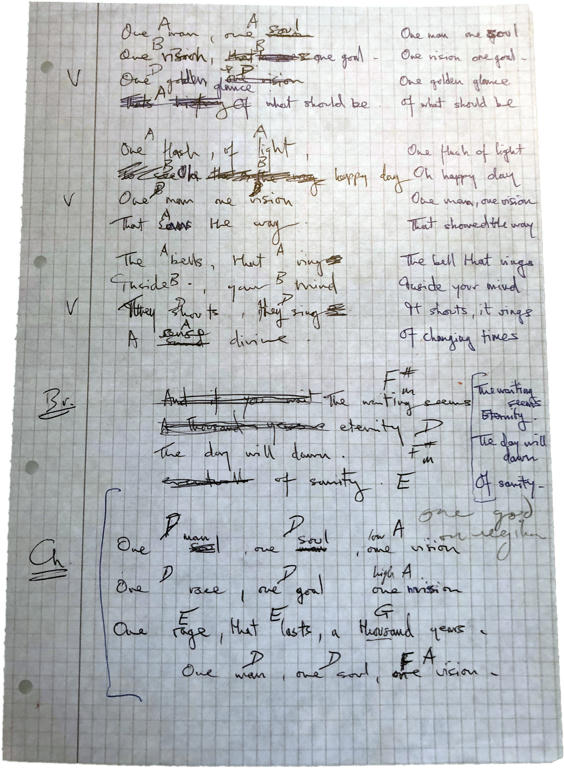 A A
One man, one soul One man one soul
B B
One vision, one goal. One vision one goal.
V D D
One golden glance vision One golden glance
A
Of what should be. of what should be
A A
One flash, of light, One flash of light
B
happy day Oh happy day
V D D
One man one vision One man, one vision
A
That the way. That showed the way
A A
The bells, that ring The bell that rings
B B
Inside, your mind Inside your mind
V D D
They shouts, they sing It shouts, it rings
A
A sense divine. Of changing times
F#m
Br. And if you wait The waiting seems The waiting seems
A Thousand eternity D Eternity.
F#m
The day will dawn. The day will dawn
of sanity. E Of sanity.
one god
D D low A
Ch. One man soul, one soul, one vision
D D high A
One race, one goal one mission
E E G
One rage, that lasts, a thousand years.
D D F A
One man, one soul, one vision.